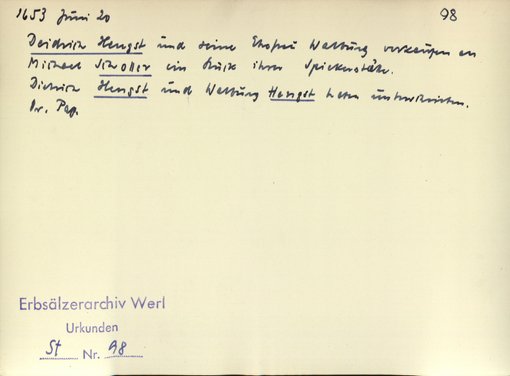 1653 Juni 20 98
Deidrich Hengst und seine Ehefrau Walburg verkaufen an
Michael Scholler ein Stück ihrer Spickerstätte.
Dietrich Hengst und Walburg Hengst haben unterschrieben.
Or. Pap.
Erbsälzerarchiv Werl
Urkunden
St Nr. 98